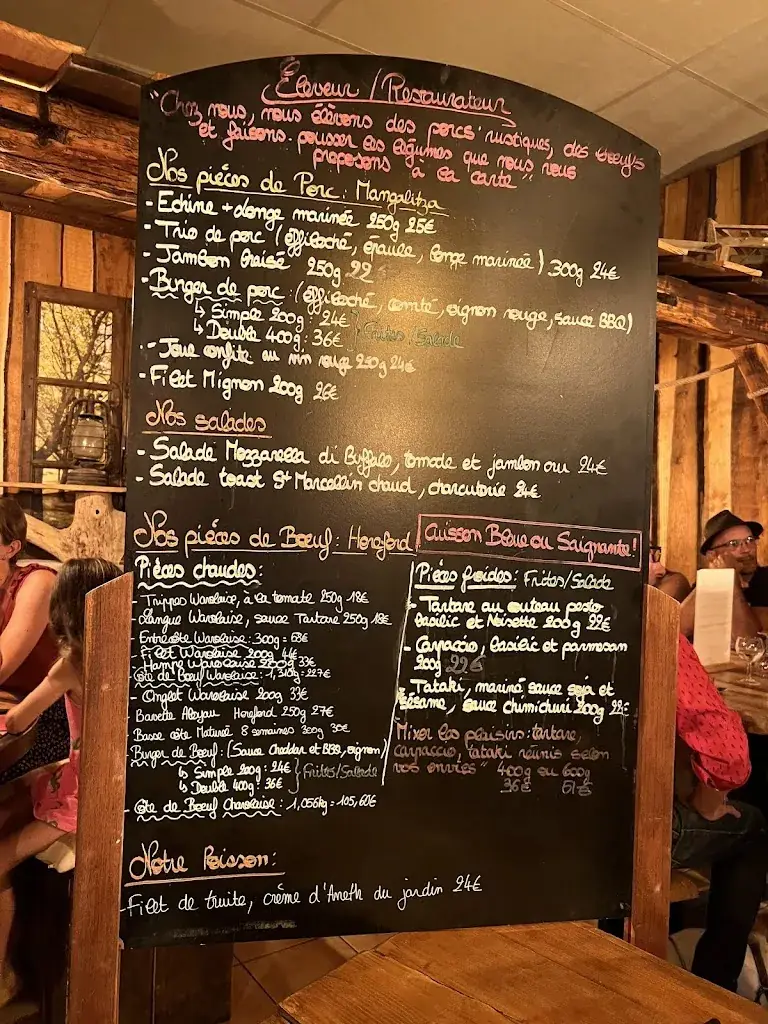 Éleveur / Restaurateur
"Chez nous, nous élèvons des porcs rustiques, des boeufs
et faisons pousser les légumes que nous vous
proposons à la carte"
Nos pièces de Porc : Mangalitza
- Echine + longe marinée 250g 25€
- Trio de porc (effiloché, épaule, longe marinée) 300g 24€
- Jambon braisé 250g 22€
- Burger de porc : (effiloché, comté, oignon rouge, sauce BBQ)
↳ Simple 200g : 24€
↳ Double 400g : 36€ } Frites/Salade
- Joue confite au vin rouge 250g 24€
- Filet Mignon 200g 26€
Nos salades
- Salade Mozzarella di Buffala, tomate et jambon cru 24€
- Salade toast St Marcellin chaud, charcuterie 24€
Nos pièces de Boeuf : Hereford
Cuisson Bleue ou Saignante !
Pièces chaudes :
- Trippes Warolaise, à la tomate 250g 18€
- Langue Warolaise, sauce Tartare 250g 18€
- Entrecôte Warolaise : 300g = 63€
- Filet Warolaise 200g 44€
- Hampe Warolaise 200g 33€
- Côte de Boeuf Warolaise : 1,310kg = 227€
- Onglet Warolaise 200g 33€
Bavette Aloyau Hereford 250g 27€
Basse côte Maturée 8 semaines 300g 30€
Burger de Boeuf : (Sauce Cheddar et BBQ, oignon)
↳ Simple 200g : 24€
↳ Double 400g : 36€ } Frites/Salade
- Côte de Boeuf Charolaise : 1,056kg = 105,60€
Pièces froides : Frites/Salade
- Tartare au couteau pesto
basilic et Noisette 200g 22€
- Carpaccio, basilic et parmesan
200g 22€
- Tataki, mariné sauce soja et
sésame, sauce chimichuri 200g 22€
Mixer les plaisirs : tartare,
carpaccio, tataki réunis selon
vos envies" 400g ou 600g
36€ 51€
Notre Poisson :
- Filet de truite, crème d'Aneth du jardin 24€